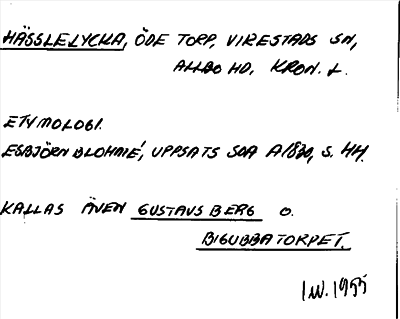 HÄSSLELYCKA, ÖDE TORP, VIRESTADS SN,
ALLBO HD, KRON. L.
ETYMOLOGI.
ESBJÖRN BLOHMÉ, UPPSATS SOA A1830, S. 44.
KALLAS ÄVEN GUSTAVSBERG O.
BIGUBBATORPET.
1955